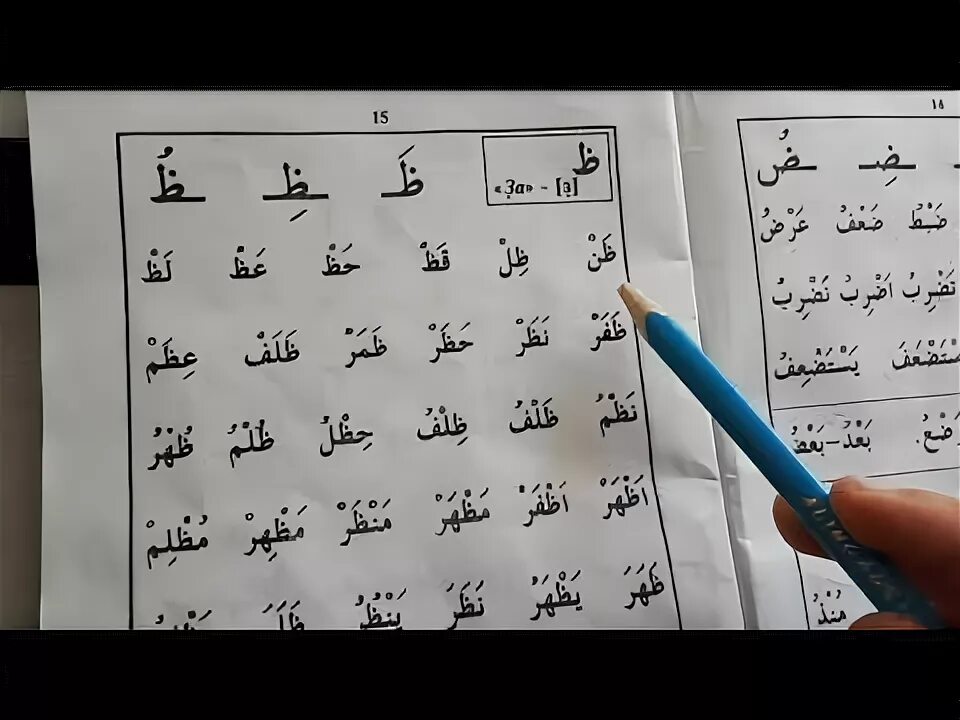 15
ظ «За» - [з] ظَ ظِ ظُ
ظَنْ ظِلْ قَظْ حَظْ عَظْ لَظْ
ظَفَرْ نَظَرْ حَظَرْ ظَمَرْ ظَلَفْ عِظَمْ
نَظْمُ ظَلْفُ ظِلْفُ حِظْلُ ظُلْمُ ظُهْرُ
اَظْهَرْ اَظْفَرْ مَظْهَرْ مَنْظَرْ مَظْهِرْ مُظْلِمْ
ظَهَرَ يَظْهَرُ نَظَرَ يَنْظُرُ
ضِ ضُ
ضَبْطُ ضَعْفُ عَرْضُ
نَضْرِبُ اَضْرِبُ نَضْرِبُ
يَسْتَضْعِفُ
بَعْدُ-بَعْضُ
مُنْذُ